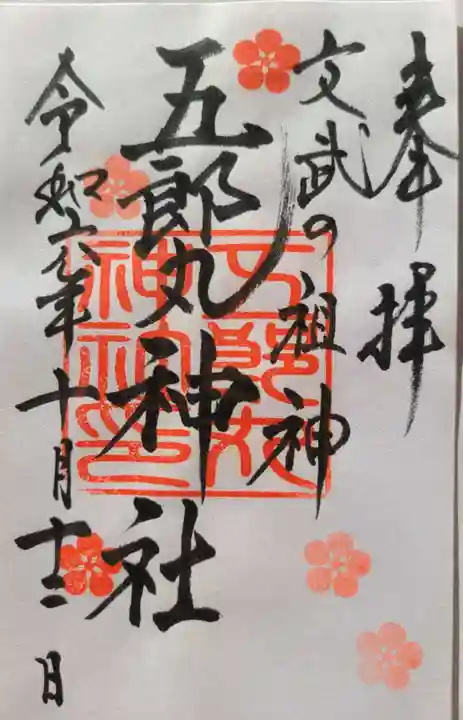 奉拝
文武の祖神
五郎丸神社
五郎丸神社印
令和六年十月十二日